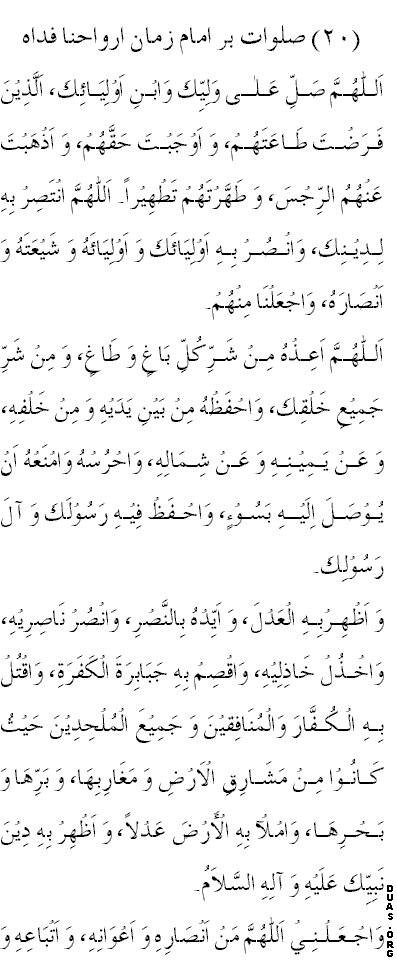 (٢٠) صلوات بر امام زمان ارواحنا فداه
اَللّٰهُمَّ صَلِّ عَلٰى وَلِيِّكَ وَابْنِ اَوْلِيَائِكَ، اَلَّذِيْنَ
فَرَضْتَ طَاعَتَهُمْ، وَ اَوْجَبْتَ حَقَّهُمْ، وَ اَذْهَبْتَ
عَنْهُمُ الرِّجْسَ، وَ طَهَّرْتَهُمْ تَطْهِيْراً۔ اَللّٰهُمَّ انْتَصِرْ بِهِ
لِدِيْنِكَ، وَانْصُرْ بِهِ اَوْلِيَائَكَ وَ اَوْلِيَائَهُ وَ شَيْعَتَهُ وَ
اَنْصَارَهُ، وَاجْعَلْنَا مِنْهُمْ۔
اَللّٰهُمَّ اَعِذْهُ مِنْ شَرِّ كُلِّ بَاغٍ وَ طَاغٍ، وَ مِنْ شَرِّ
جَمِيْعِ خَلْقِكَ، وَاحْفَظْهُ مِنْ بَيْنِ يَدَيْهِ وَ مِنْ خَلْفِهِ،
وَ عَنْ يَمِيْنِهِ وَ عَنْ شِمَالِهِ، وَاحْرُسْهُ وَامْنَعْهُ اَنْ
يُوْصَلَ اِلَيْهِ بَسُوْءٍ، وَاحْفَظْ فِيْهِ رَسُوْلَكَ وَ آلَ
رَسُوْلِكَ۔
وَ اَظْهِرْ بِهِ الْعَدْلَ، وَ اَيِّدْهُ بِالنَّصْرِ، وَانْصُرْ نَاصِرِيْهِ،
وَاخْذُلْ خَاذِلِيْهِ، وَاقْصِمْ بِهِ جَبَابِرَةَ الْكَفَرَةِ، وَاقْتُلْ
بِهِ الْكُفَّارَ وَالْمُنَافِقيْنَ وَ جَمِيْعَ الْمُلْحِدِيْنَ حَيْثُ
كَانُوْا مِنْ مَشَارِقِ الْاَرْضِ وَ مَغَارِبِهَا، وَ بَرِّهَا وَ
بَحْرِهَا، وَامْلَأْ بِهِ الْأَرْضَ عَدْلاً، وَ اَظْهِرْ بِهِ دِيْنَ
نَبِيِّكَ عَلَيْهِ وَ آلِهِ السَّلاَمُ۔
وَاجْعَلْنِيْ اَللّٰهُمَّ مَنْ اَنْصَارِهِ وَ اَعْوَانِهِ، وَ اَتْبَاعِهِ وَ
DUAS.ORG